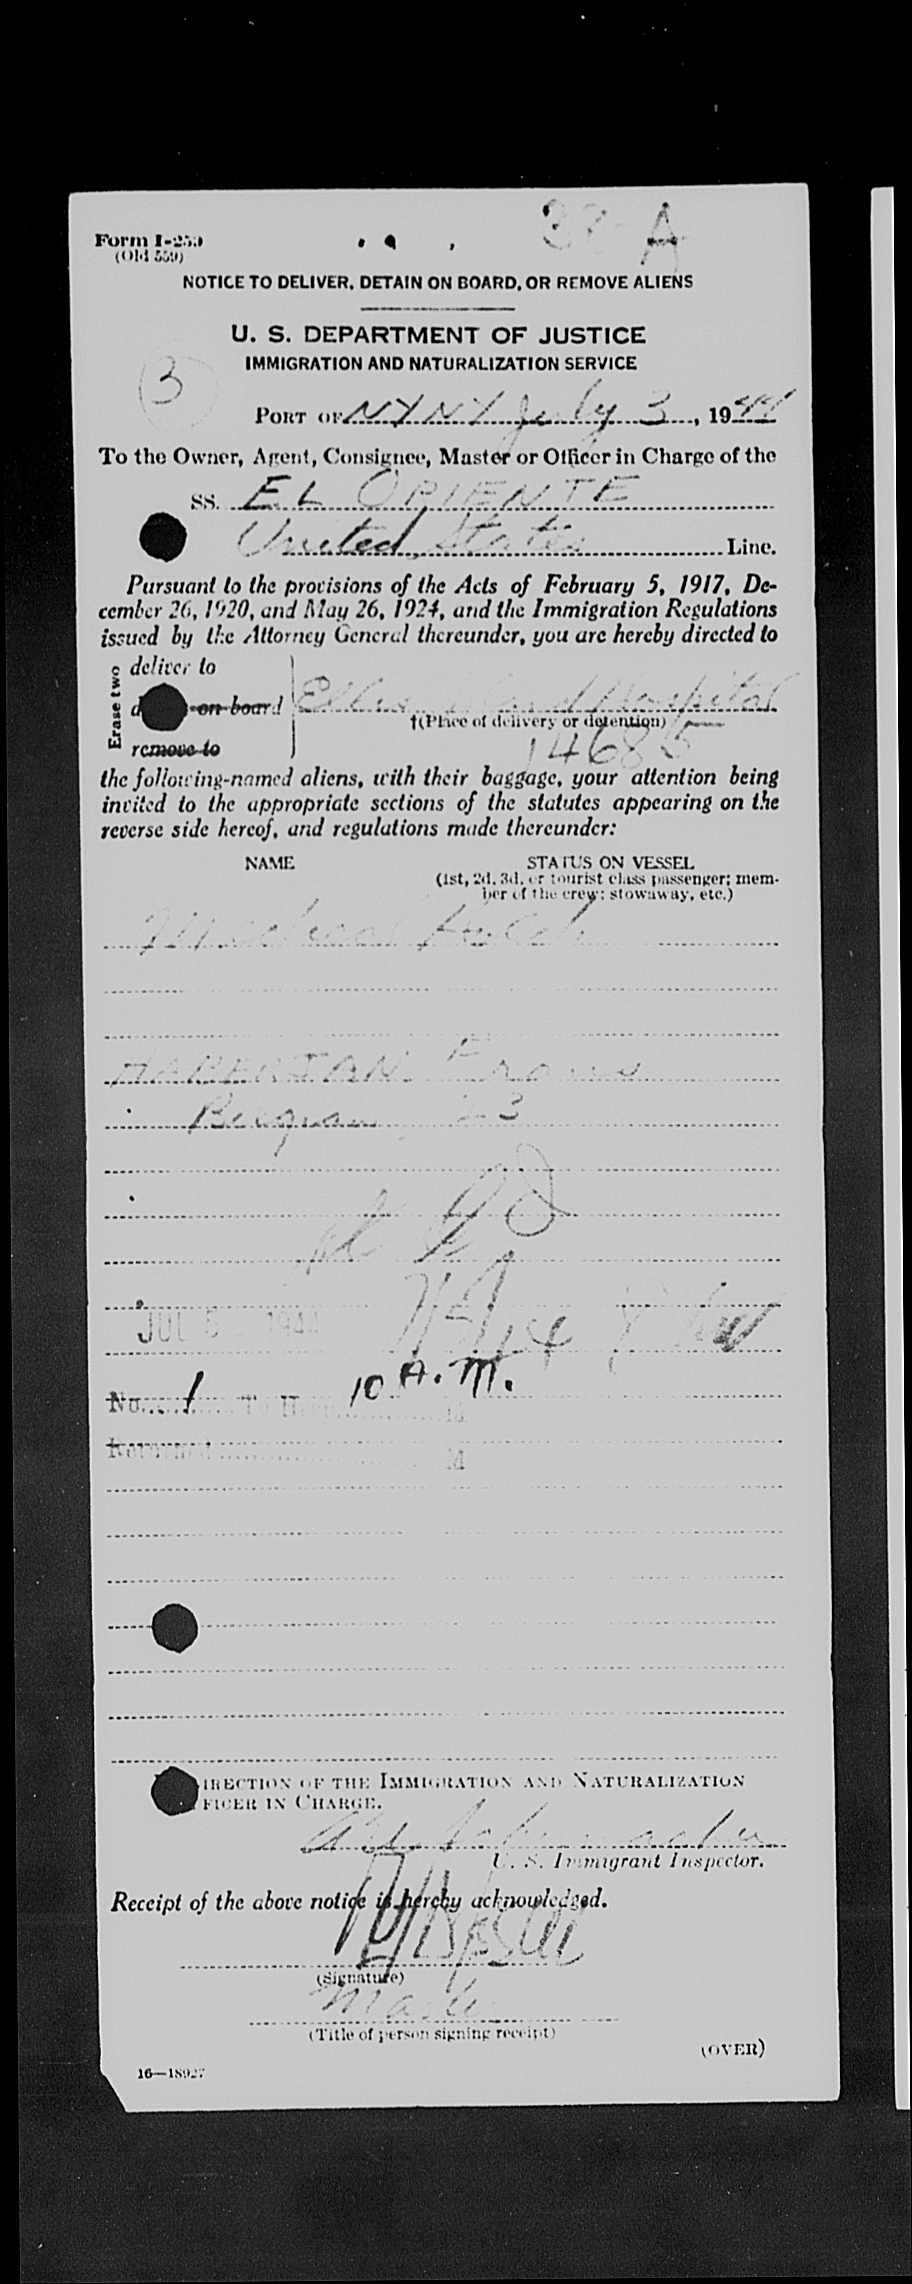 Form I-259
(Old 559)
33-A
NOTICE TO DELIVER, DETAIN ON BOARD, OR REMOVE ALIENS
U. S. DEPARTMENT OF JUSTICE
IMMIGRATION AND NATURALIZATION SERVICE
3
PORT OF NY NY July 3, 1944
To the Owner, Agent, Consignee, Master or Officer in Charge of the
SS. EL ORIENTE
United States Line.
Pursuant to the provisions of the Acts of February 5, 1917, De-
cember 26, 1920, and May 26, 1924, and the Immigration Regulations
issued by the Attorney General thereunder, you are hereby directed to
Erase two
deliver to
on board Ellis Island Hospital
†(Place of delivery or detention)
remove to
14685
the following-named aliens, with their baggage, your attention being
invited to the appropriate sections of the statutes appearing on the
reverse side hereof, and regulations made thereunder:
NAME STATUS ON VESSEL
(1st, 2d, 3d, or tourist class passenger; mem-
ber of the crew; stowaway, etc.)
Medical Hold
Frans
Belgian 23
JUL 1944
No. 1 To H 10 A.M. M
Returned M
DIRECTION OF THE IMMIGRATION AND NATURALIZATION
OFFICER IN CHARGE.
U. S. Immigrant Inspector.
Receipt of the above notice is hereby acknowledged.
(Signature)
Master
(Title of person signing receipt)
(OVER)
16—18927